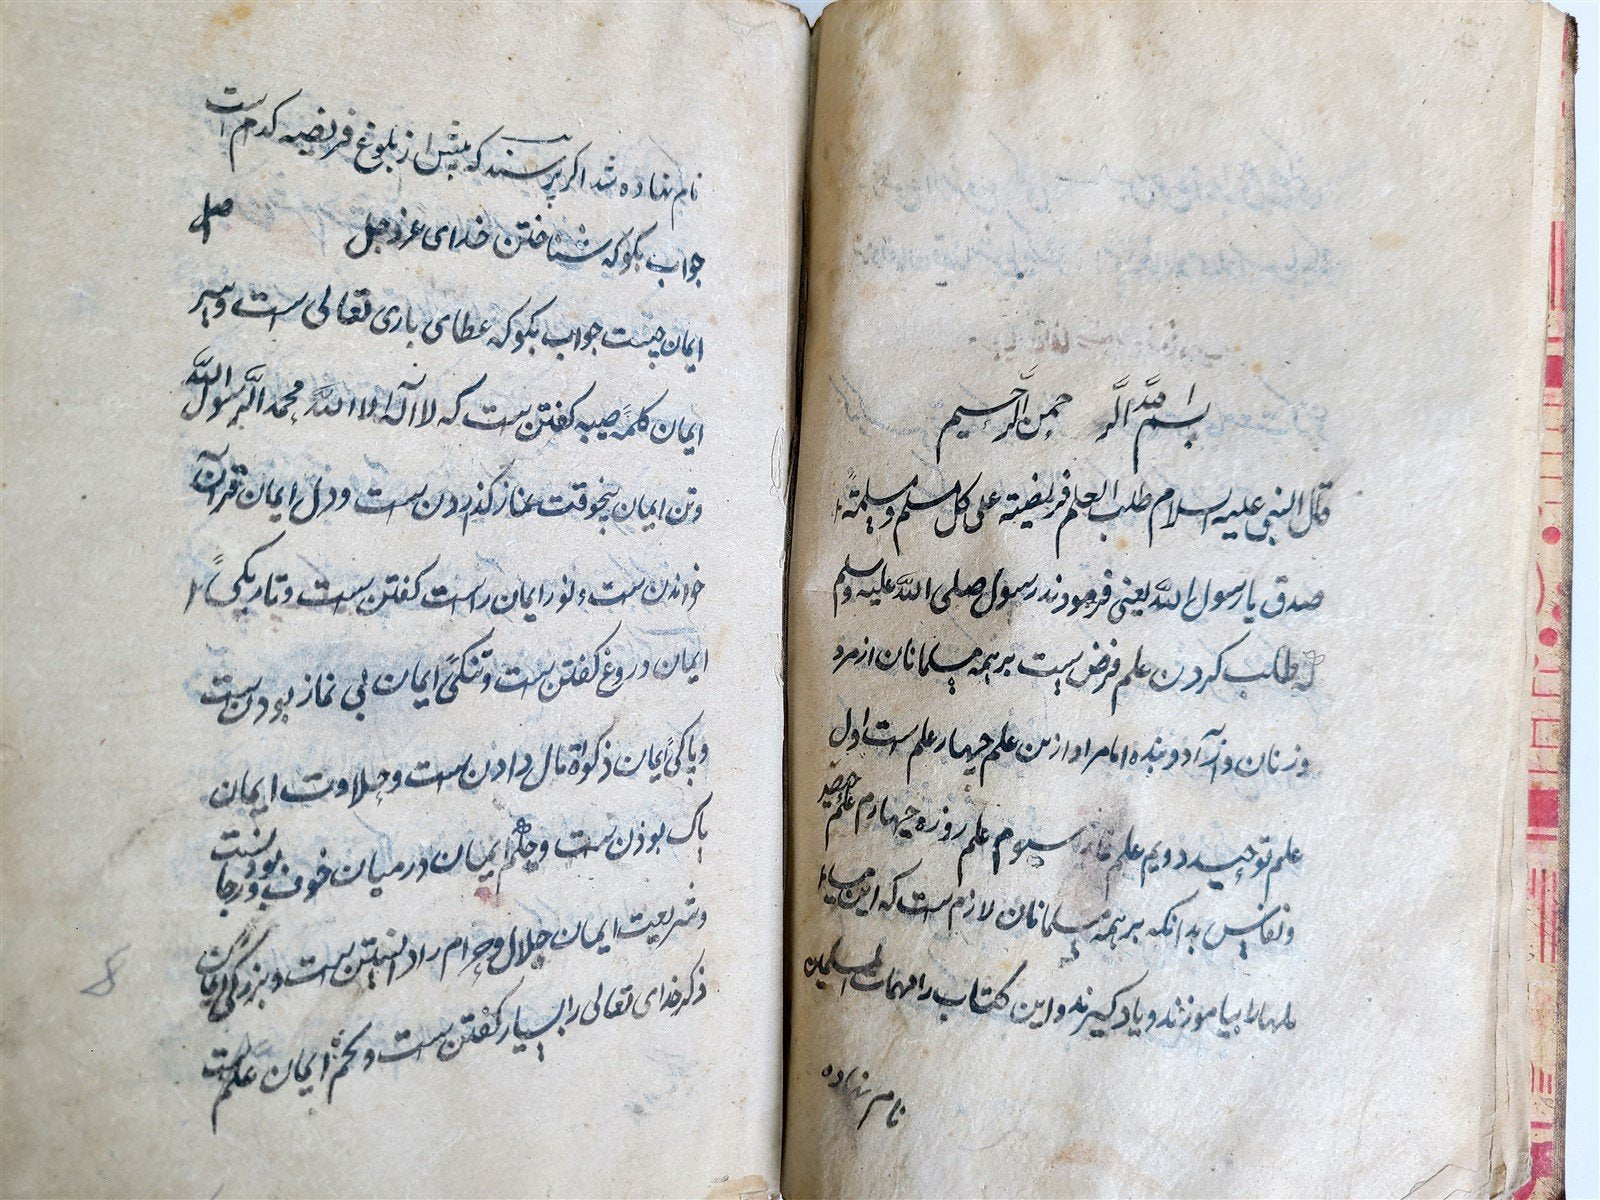 بسم الله الرحمن الرحيم
قال النبی علیه السلام طلب العلم فریضیته علی کل مسلم و مسلمة
صدق یا رسول الله یعنی فرمودند رسول صلی الله علیه وسلم
که طلب کردن علم فرض ست بر همه مسلمانان از مرد
و زنان و از آزاد و بنده اما مراد ازین علم چهار علم ست اول
علم توحید دویم علم نماز سیوم علم روزه چهارم علم حیض
و نفاس بدانکه بر همه مسلمانان لازم ست که این مسا
ئلها را بیاموزند و یاد گیرند و این کتاب را مهمات المسلمین
نام نهاده
نام نهاده شد اگر پرسند که پیش از بلوغ فریضیه کدام است
جواب بگو که شناختن خدای عزوجل اصل
ایمان چیست جواب بگو که عطای باری تعالی ست و سر
ایمان کلمهٔ طیبه گفتن ست که لا اله الا الله محمد الرسول الله
و تن ایمان پنجوقت نماز گذاردن ست و دل ایمان قرآن
خواندن ست و نور ایمان راست گفتن ست و تاریکی
ایمان دروغ گفتن ست و تنگی ایمان بی نماز بودن ست
و پاکی ایمان ذکوة مال دادن ست و حلاوت ایمان
پاک بودن ست و ایمان در میان خوف و رجا بودنست
و شریعت ایمان حلال و حرام را دانستن ست و بزرگی ایمان
ذکر خدای تعالی را بسیار گفتن ست و تخم ایمان علم ست
8